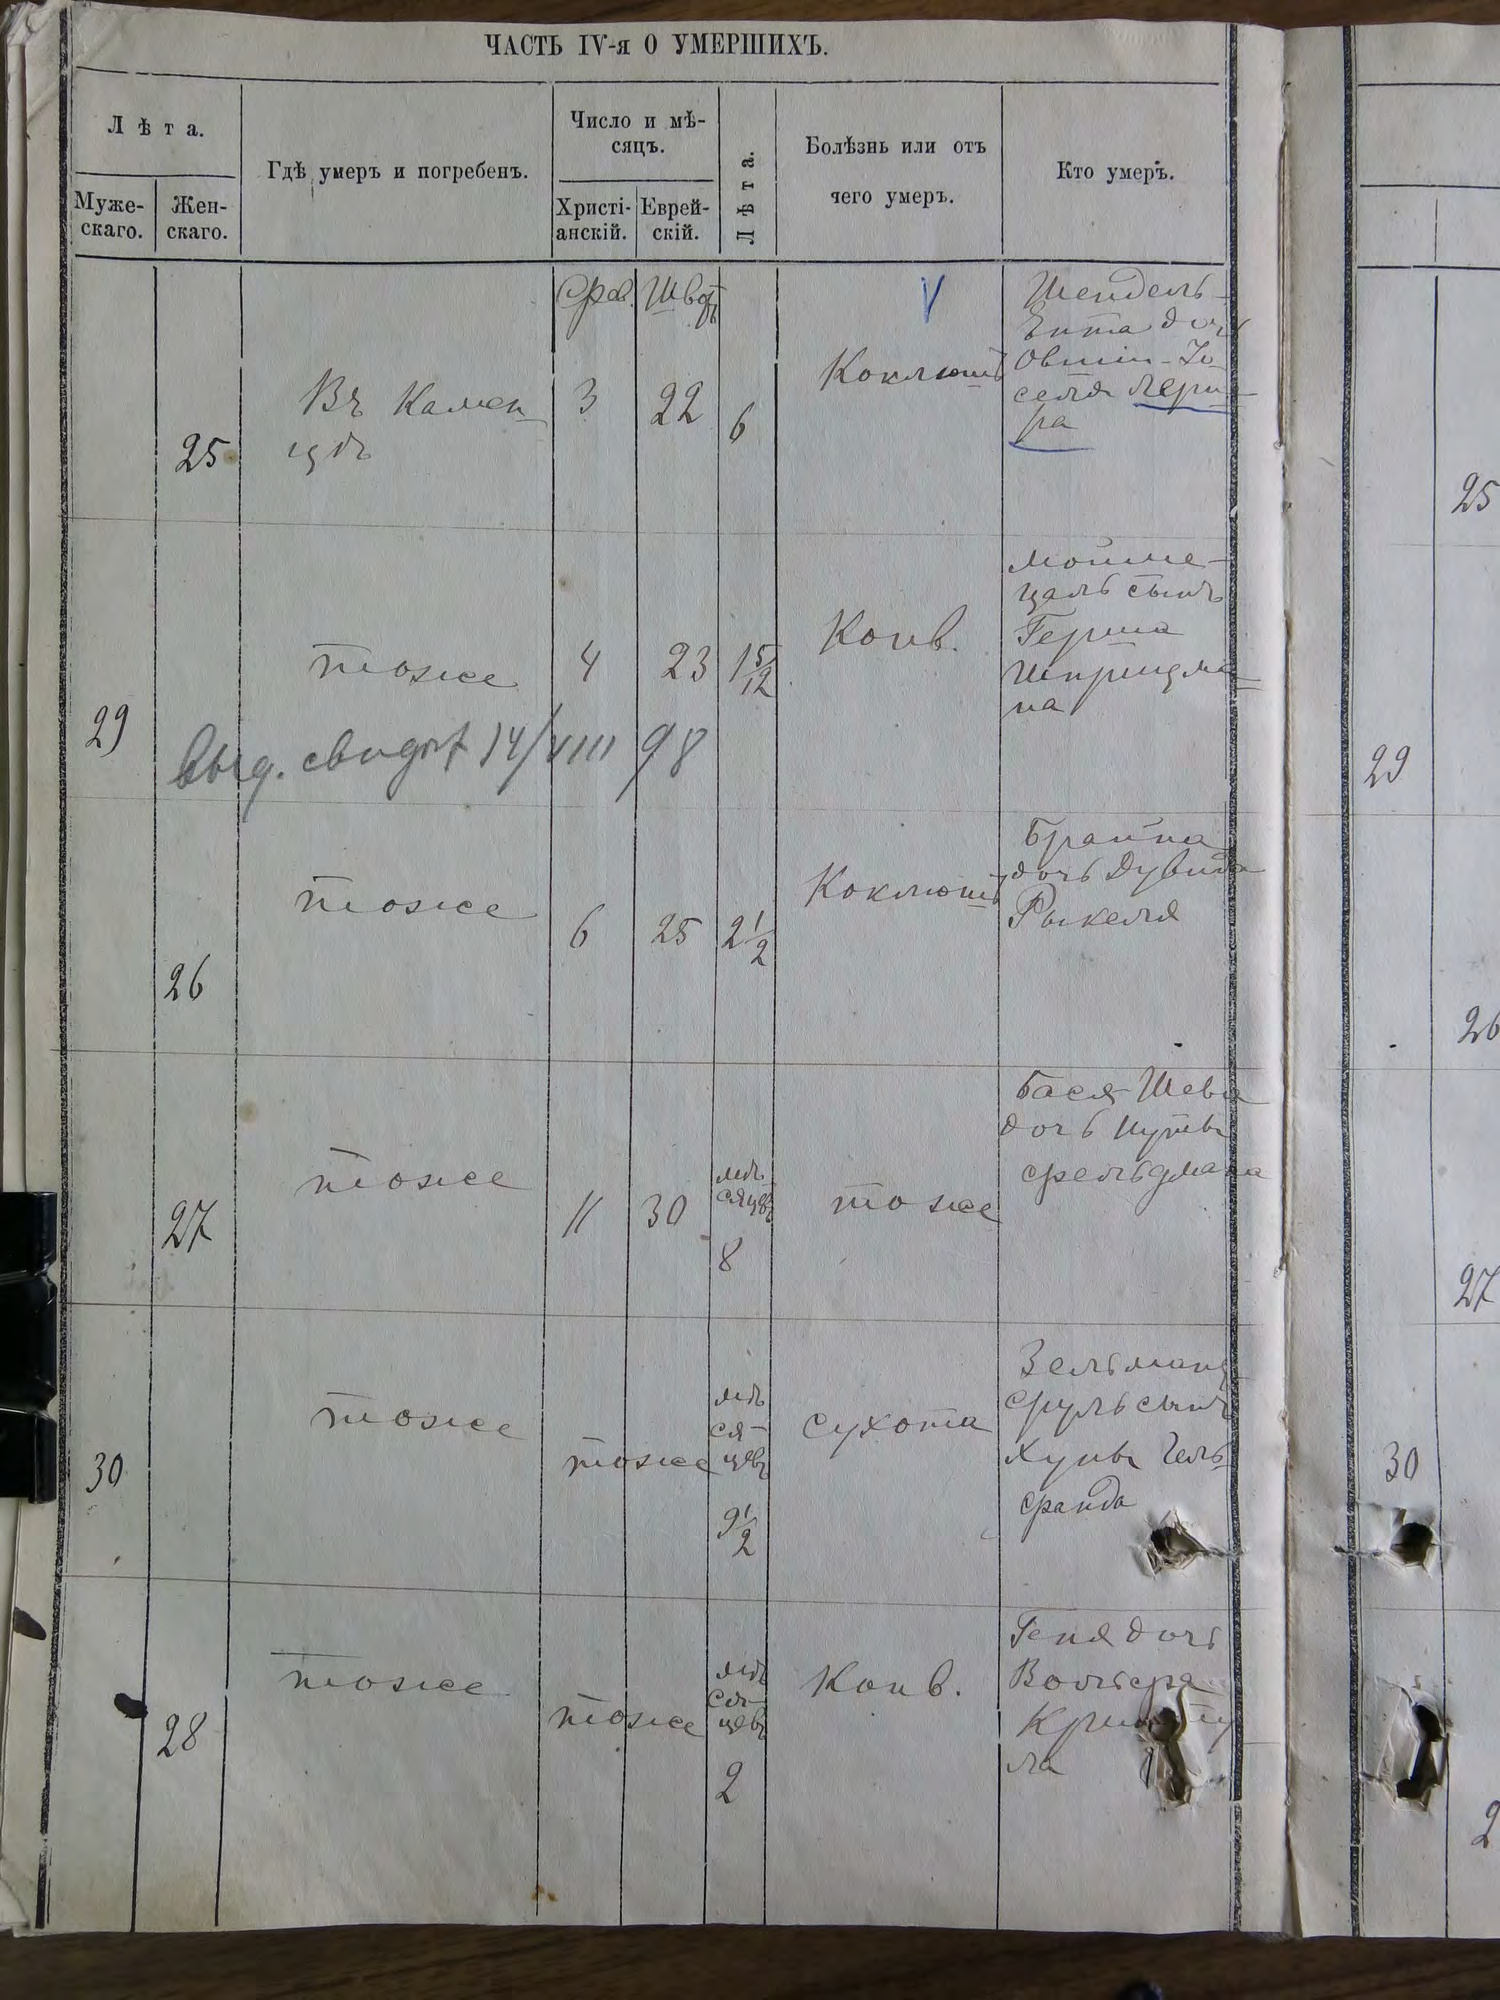 ЧАСТЬ IV-я О УМЕРШИХЪ.
Лѣта.
Муже-
скаго.
Жен-
скаго.
Гдѣ умеръ и погребенъ.
Число и мѣ-
сяцъ.
Христі-
анскій.
Еврей-
скій.
Лѣта.
Болѣзнь или отъ
чего умеръ.
Кто умеръ.
Фев. Шватъ
25
Въ Камен-
цѣ
3
22
6
Коклюшъ
Шендель-
Ента дочь
Овшіи-Іо-
селя Лери-
ра
25
29
тоже
4
23
1 5/12
Конв.
цаль сынъ
Герша
Шприцма-
на
Выд. свидѣт 14/VIII 98
29
26
тоже
6
25
2 1/2
Коклюшъ
Брайна
дочь Дувида
Рыкеля
26
27
тоже
11
30
мѣ-
сяцевъ
8
тоже
Бася-Шева
дочь Нуты
Фельдмана
27
30
тоже
тоже
мѣ-
ся-
цевъ
9 1/2
сухота
Зельман-
Сруль сынъ
Хуны Гель-
фанда
30
28
тоже
тоже
мѣ-
ся-
цевъ
2
Конв.
Геня дочь
Вольфа
ла
2